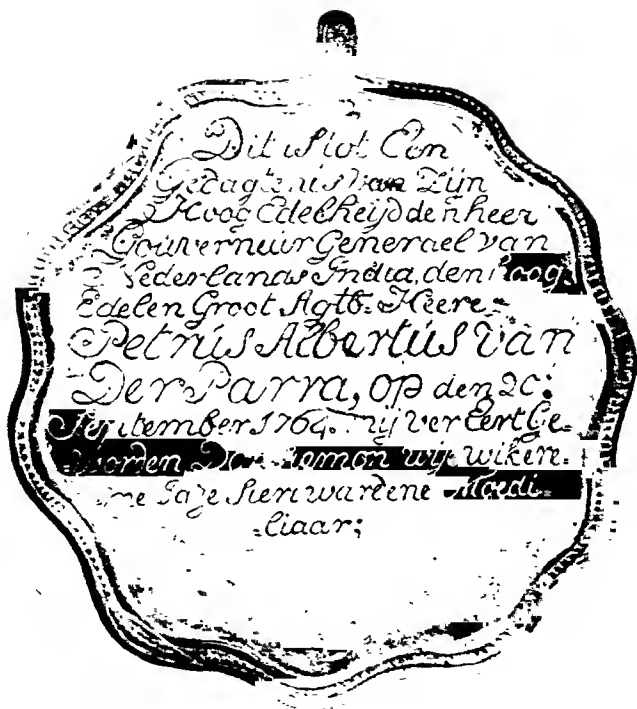 Dit is tot Een
Gedagtenis van Zijn
Hoog Edelheijd den heer
Gouverneur Generael van
Nederlands India, den Hoog.
Edelen Groot Agtb. Heere
Petrus Albertus Van
Der Parra, op den 20:
September 1764. mij ver Eert Ge-
worden Don Simon wikere-
me Jaje Sieriwardene Moedi-
liaar;